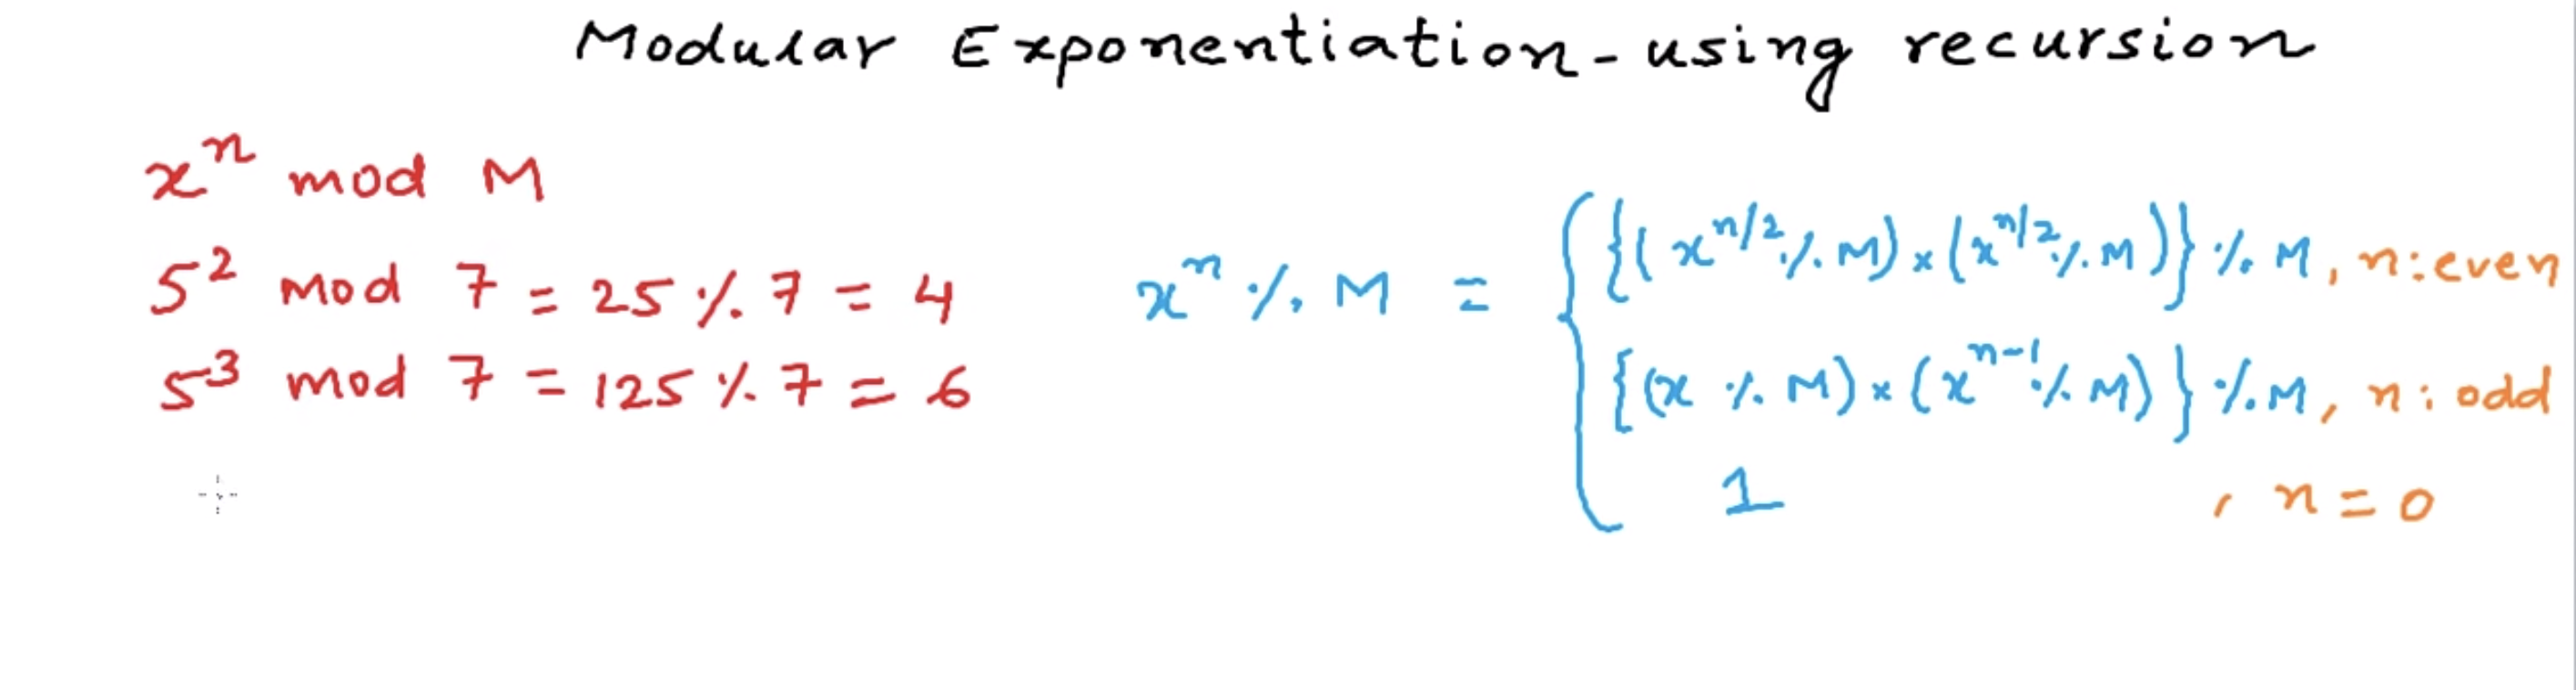 Modular Exponentiation - using recursion
xⁿ mod M
5² mod 7 = 25 % 7 = 4
5³ mod 7 = 125 % 7 = 6
xⁿ % M =
{(x^(n/2) % M) × (x^(n/2) % M)} % M, n: even
{(x % M) × (x^(n-1) % M)} % M, n: odd
1 , n = 0